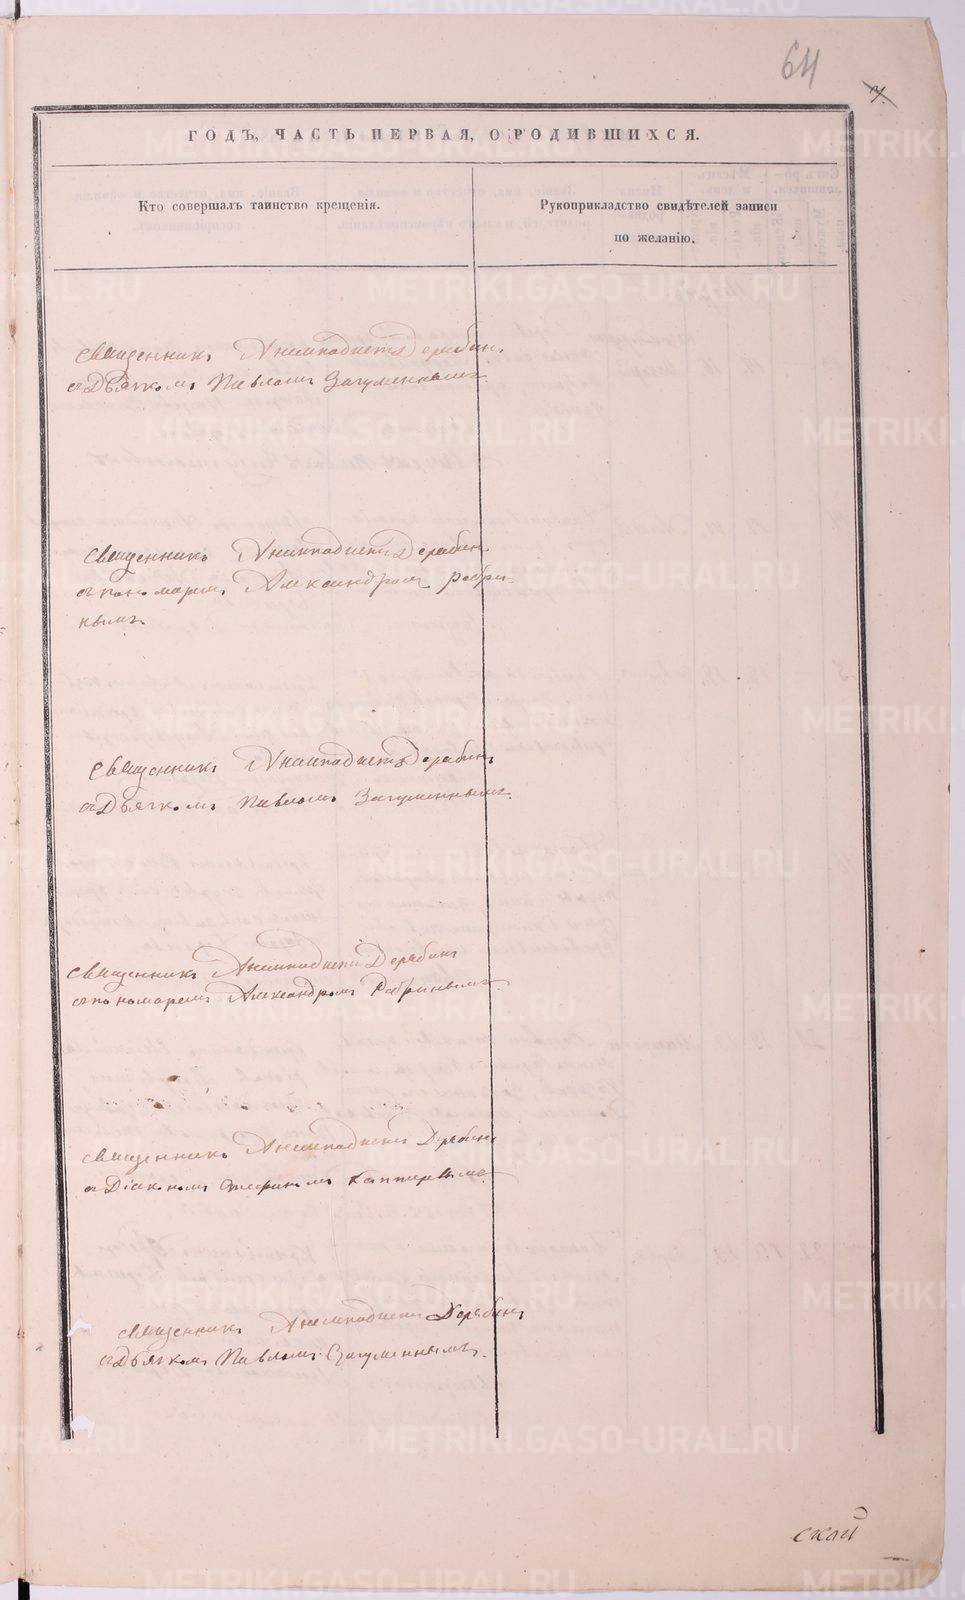 64
7.
ГОДЪ, ЧАСТЬ ПЕРВАЯ, О РОДИВШИХСЯ.
Кто совершалъ таинство крещенія.
Рукоприкладство свидѣтелей записи
по желанію.
Священникъ Анемподистъ Дерябинъ
съ Дьячкомъ Павломъ Загуменнымъ.
Священникъ Анемподистъ Дерябинъ
съ пономаремъ Александромъ Ребри-
нымъ.
Священникъ Анемподистъ Дерябинъ
съ Дьячкомъ Павломъ Загуменнымъ.
Священникъ Анемподистъ Дерябинъ
съ пономаремъ Александромъ Ребринымъ.
Священникъ Анемподистъ Дерябинъ
съ Діакономъ
Священникъ Анемподистъ Дерябинъ
съ Дьячкомъ Павломъ Загуменнымъ.
ской
METRIKI.GASO-URAL.RU